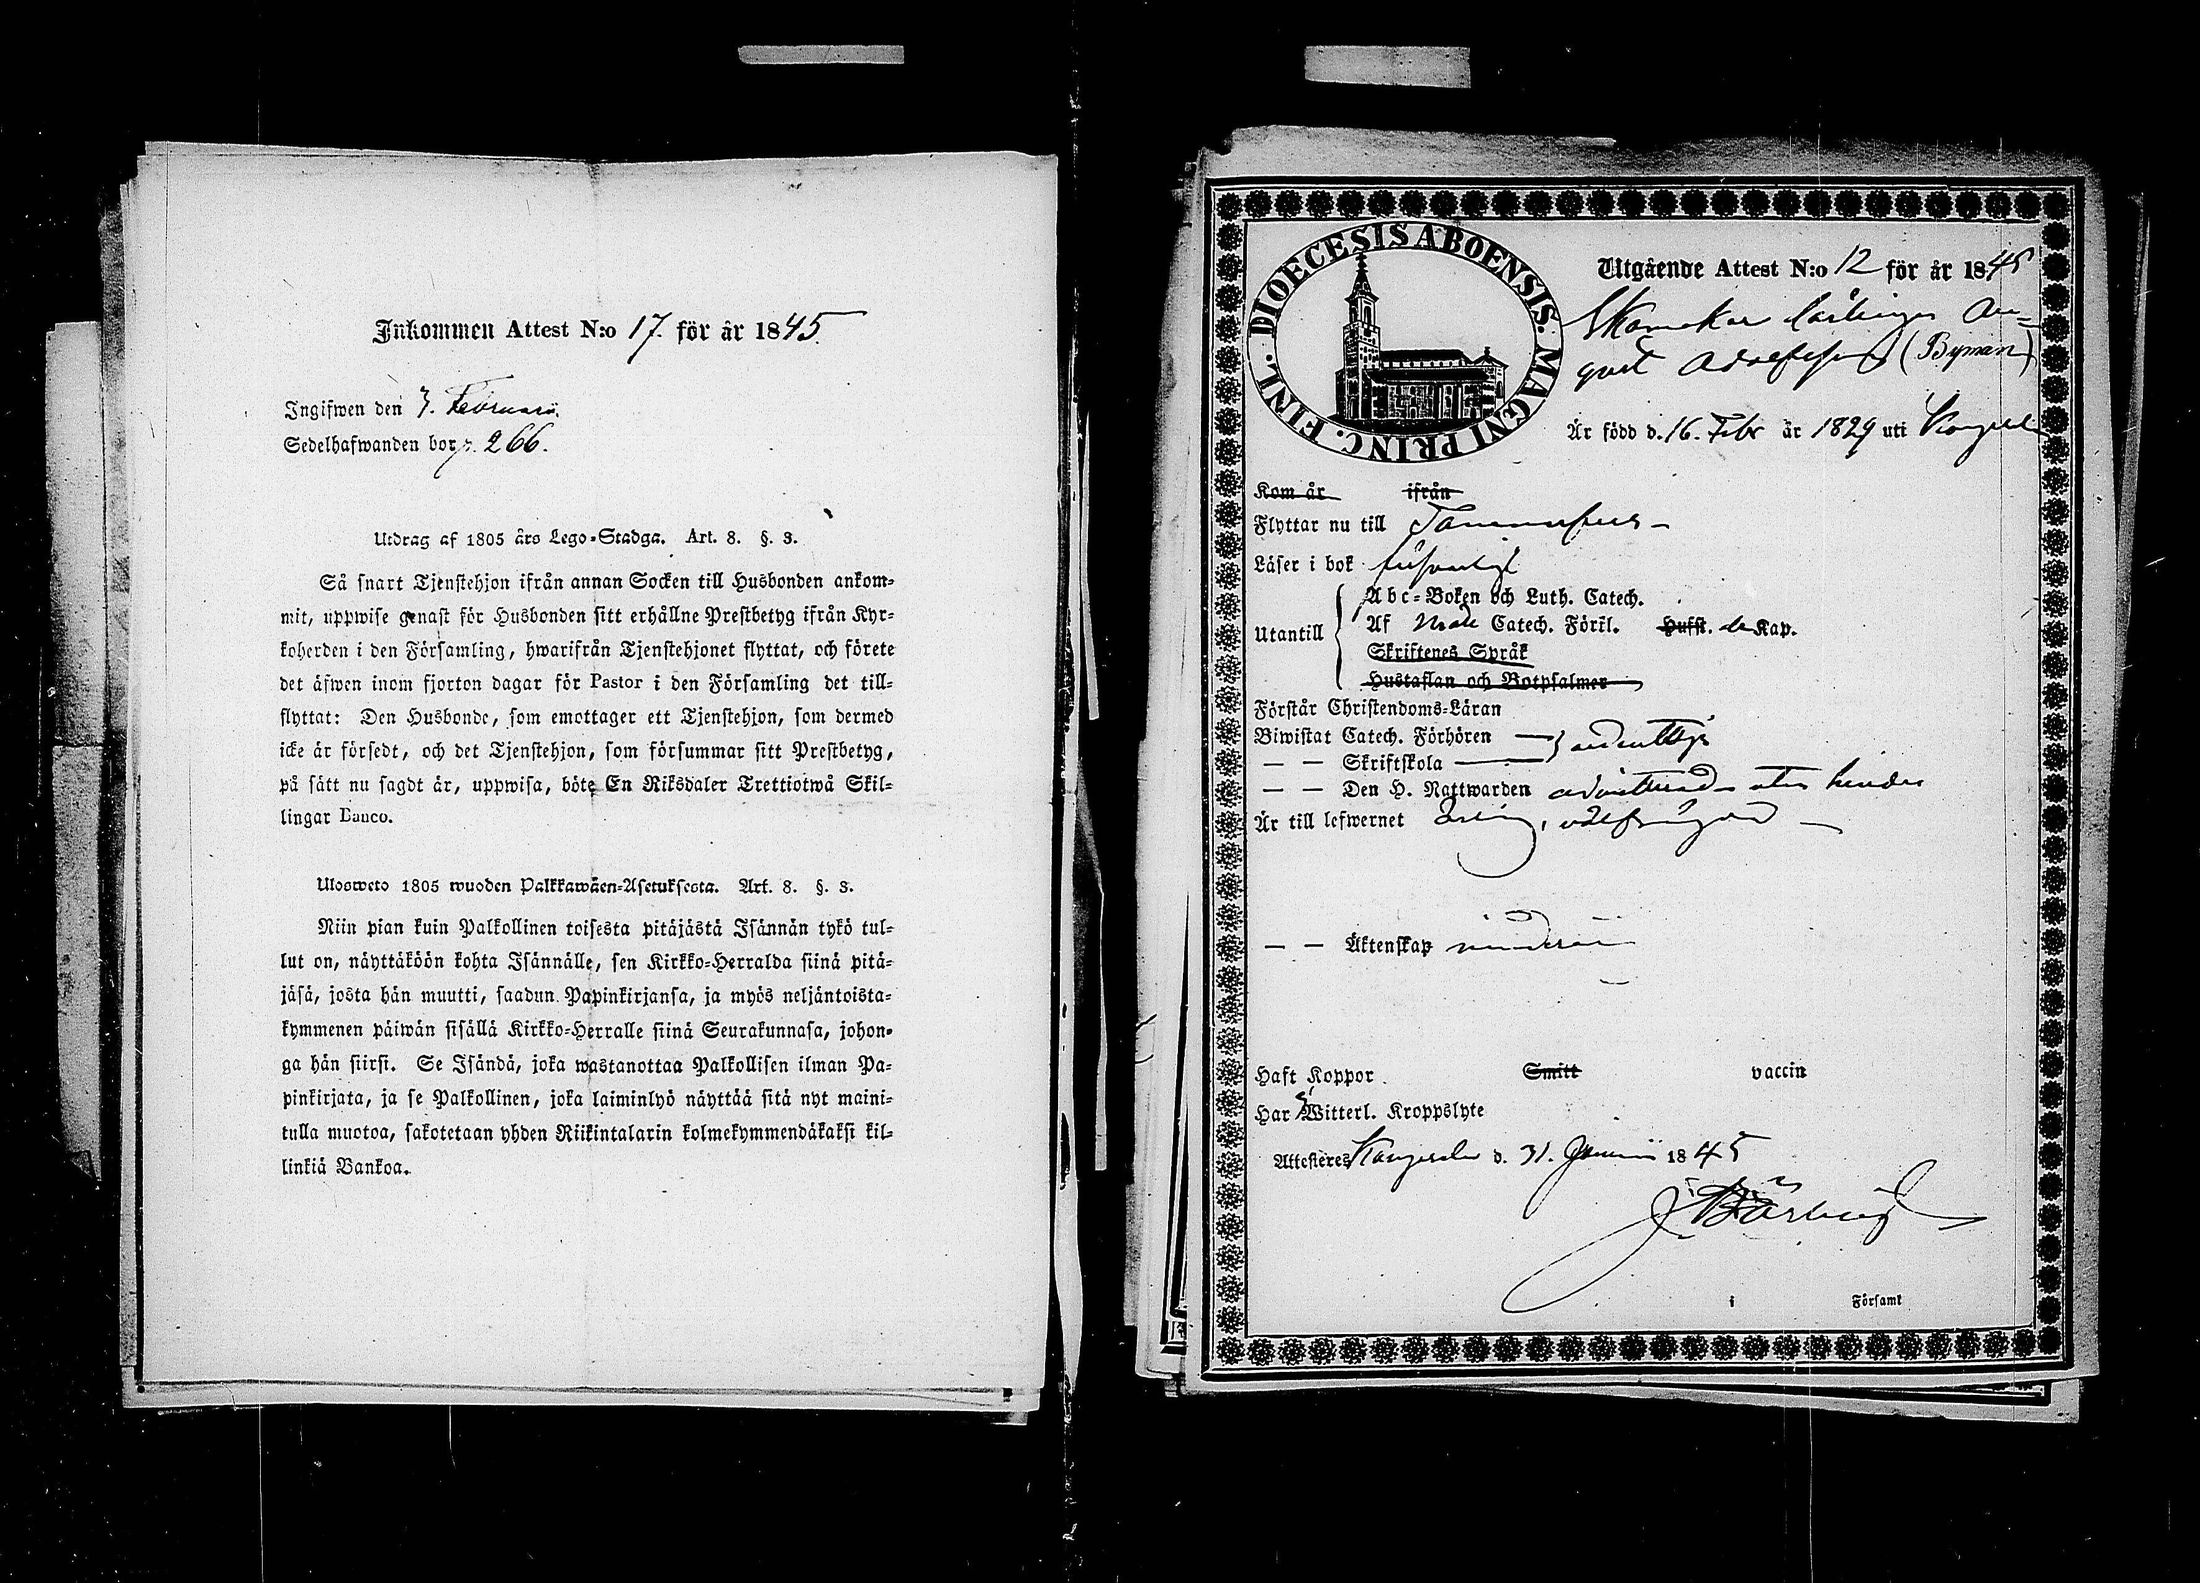 Inkommen Attest N:o 17. för år 1845.
Ingifwen den 3. Februari.
Sedelhafwanden bor p. 266.
Utdrag af 1805 års Lego-Stadga. Art. 8. §. 3.
Så snart Tjenstehjon ifrån annan Socken till Husbonden ankom-
mit, uppwise genast för Husbonden sitt erhållne Prestbetyg ifrån Kyr-
koherden i den Församling, hwarifrån Tjenstehjonet flyttat, och förete
det äfwen inom fjorton dagar för Pastor i den Församling det till-
flyttat: Den Husbonde, som emottager ett Tjenstehjon, som dermed
icke är försedt, och det Tjenstehjon, som försummar sitt Prestbetyg,
på sätt nu sagdt är, uppwisa, böte En Riksdaler Trettiotwå Skil-
lingar Banco.
Ulosweto 1805 wuoden Palkkawäen-Asetuksesta. Art. 8. §. 3.
Niin pian kuin Palkollinen toisesta pitäjästä Isännän tykö tul-
lut on, näyttäköön kohta Isännälle, sen Kirkko-Herralda siinä pitä-
jäsä, josta hän muutti, saadun Papinkirjansa, ja myös neljäntoista-
kymmenen päiwän sisällä Kirkko-Herralle siinä Seurakunnasa, johon-
ga hän siirsi. Se Isändä, joka wastanottaa Palkollisen ilman Pa-
pinkirjata, ja se Palkollinen, joka laiminlyö näyttää sitä nyt maini-
tulla muotoa, sakotetaan yhden Riikintalarin kolmekymmendäkaksi kil-
linkiä Bankoa.
DIOECESIS ABOENSIS. MAGNI PRINC. FINL.
Utgående Attest N:o 12 för år 1845
Skomakar lärlingen Au-
gust Adolfsson (Byman)
Är född d. 16. Febr år 1829 uti Kangasala
Kom år ifrån
Flyttar nu till Tammerfors
Läser i bok försvarligt
Utantill
Abc-Boken och Luth. Catech.
Af Catech. Förkl. Hufst. Kap.
Skriftenes Språk
Hustaflan och Botpsalmer
Förstår Christendoms-Läran
Biwistat Catech. Förhören
— — Skriftskola ordentligt
— — Den H. Nattwarden admitterad utan hinder
Är till lefwernet ärlig, välfrägdad
— — Äktenskap minderårig
Haft Koppor Smitt vaccin
Har Witterl. Kroppslyte
Attesteres Kangasala d. 31. Januarii 1845
i Församl